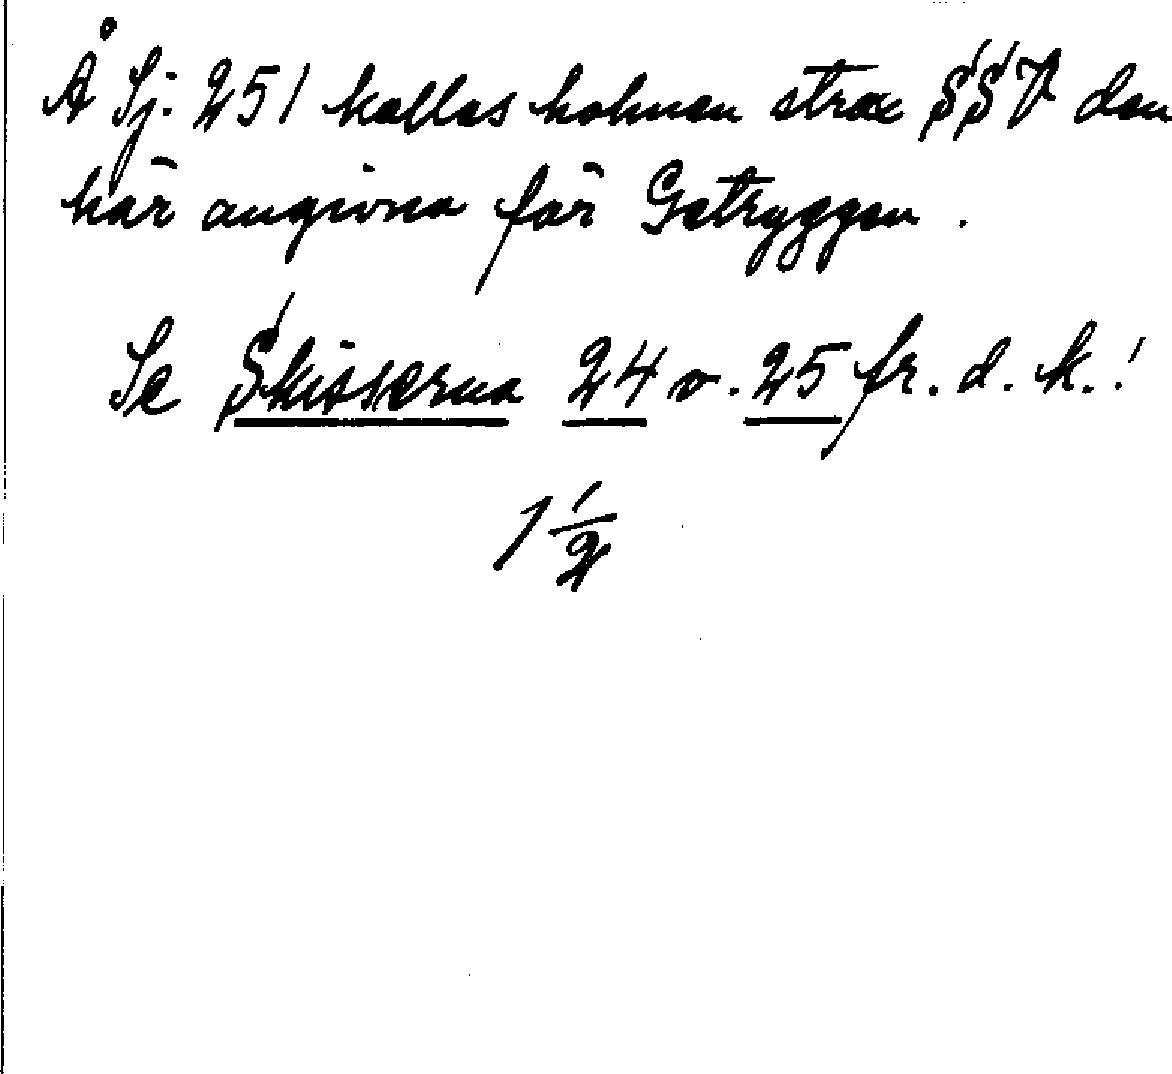 Å Sj. 251 kallas holmen strax SSV den
här angivna för Getryggen.
Se Skisserna 24 o. 25 fr. d. k.!
1 1/2